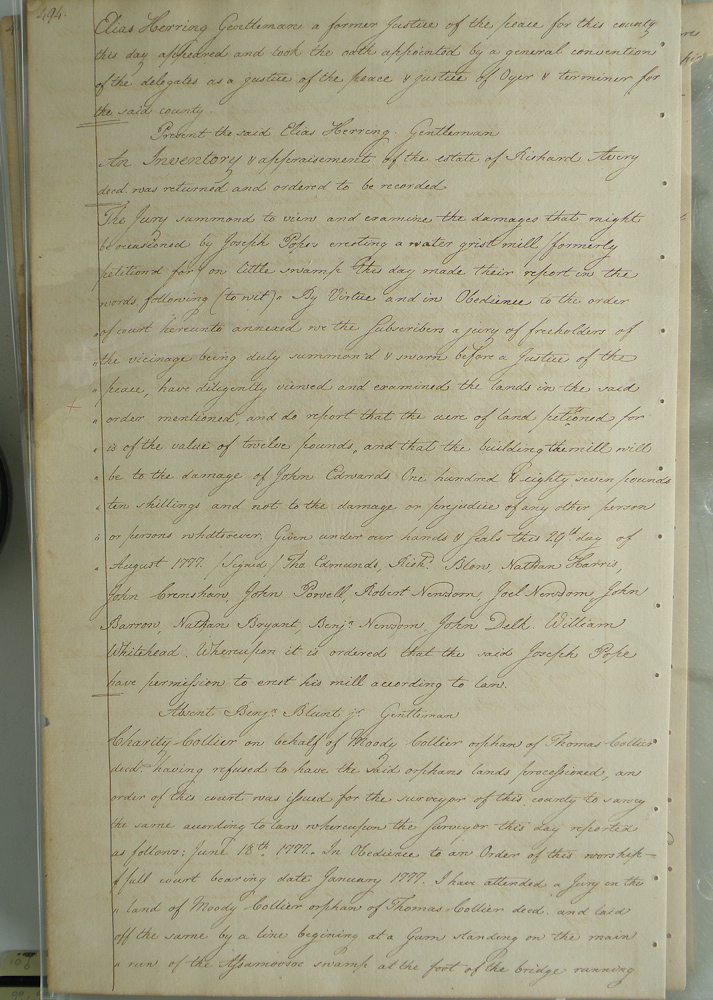 494.
Elias Herring Gentleman a former Justice of the peace for this county
this day appeared and took the oath appointed by a general convention
of the delegates as a justice of the peace & justice of Oyer & terminer for
the said county.
Present the said Elias Herring. Gentleman
An Inventory & appraisement of the estate of Richard Avery
deced was returned and ordered to be recorded
The Jury summond to view and examine the damages that might
be occasioned by Joseph Popes erecting a water grist mill, formerly
petitiond for on little swamp this day made their report in the
words following (to wit) By Virtue and in Obedience to the order
of court hereunto annexed we the Subscribers a jury of freeholders of
the vicinage being duly summon'd & sworn before a Justice of the
peace, have diligently viewed and examined the lands in the said
order mentioned, and do report that the acre of land petitioned for
is of the value of twelve pounds, and that the building the mill will
be to the damage of John Edwards One hundred & eighty seven pounds
ten shillings and not to the damage or prejudice of any other person
or persons whatsoever. Given under our hands & seals this 29th day of
August 1777. (Signed) Tho. Edmunds, Richd. Blow, Nathan Harris,
John Crenshaw, John Powell, Robert Newsom, Joel Newsom, John
Barrow, Nathan Bryant, Benja. Newsom, John Delk. William
Whitehead. Whereupon it is ordered that the said Joseph Pope
have permission to erect his mill according to law.
Absent Benja. Blunt jr. Gentleman
Charity Collier on behalf of Moody Collier orphan of Thomas Collier
decd. having refused to have the said orphans lands processioned, an
order of this court was issued for the surveyor of this county to survey
the same according to law whereupon the Surveyor this day reported
as follows: June 18th. 1777. In Obedience to an Order of this worship-
full court bearing date January 1777. I have attended a Jury on the
land of Moody Collier orphan of Thomas Collier deced. and laid
off the same by a line begining at a Gum standing on the main
run of the Assamoosoc swamp at the foot of the bridge running